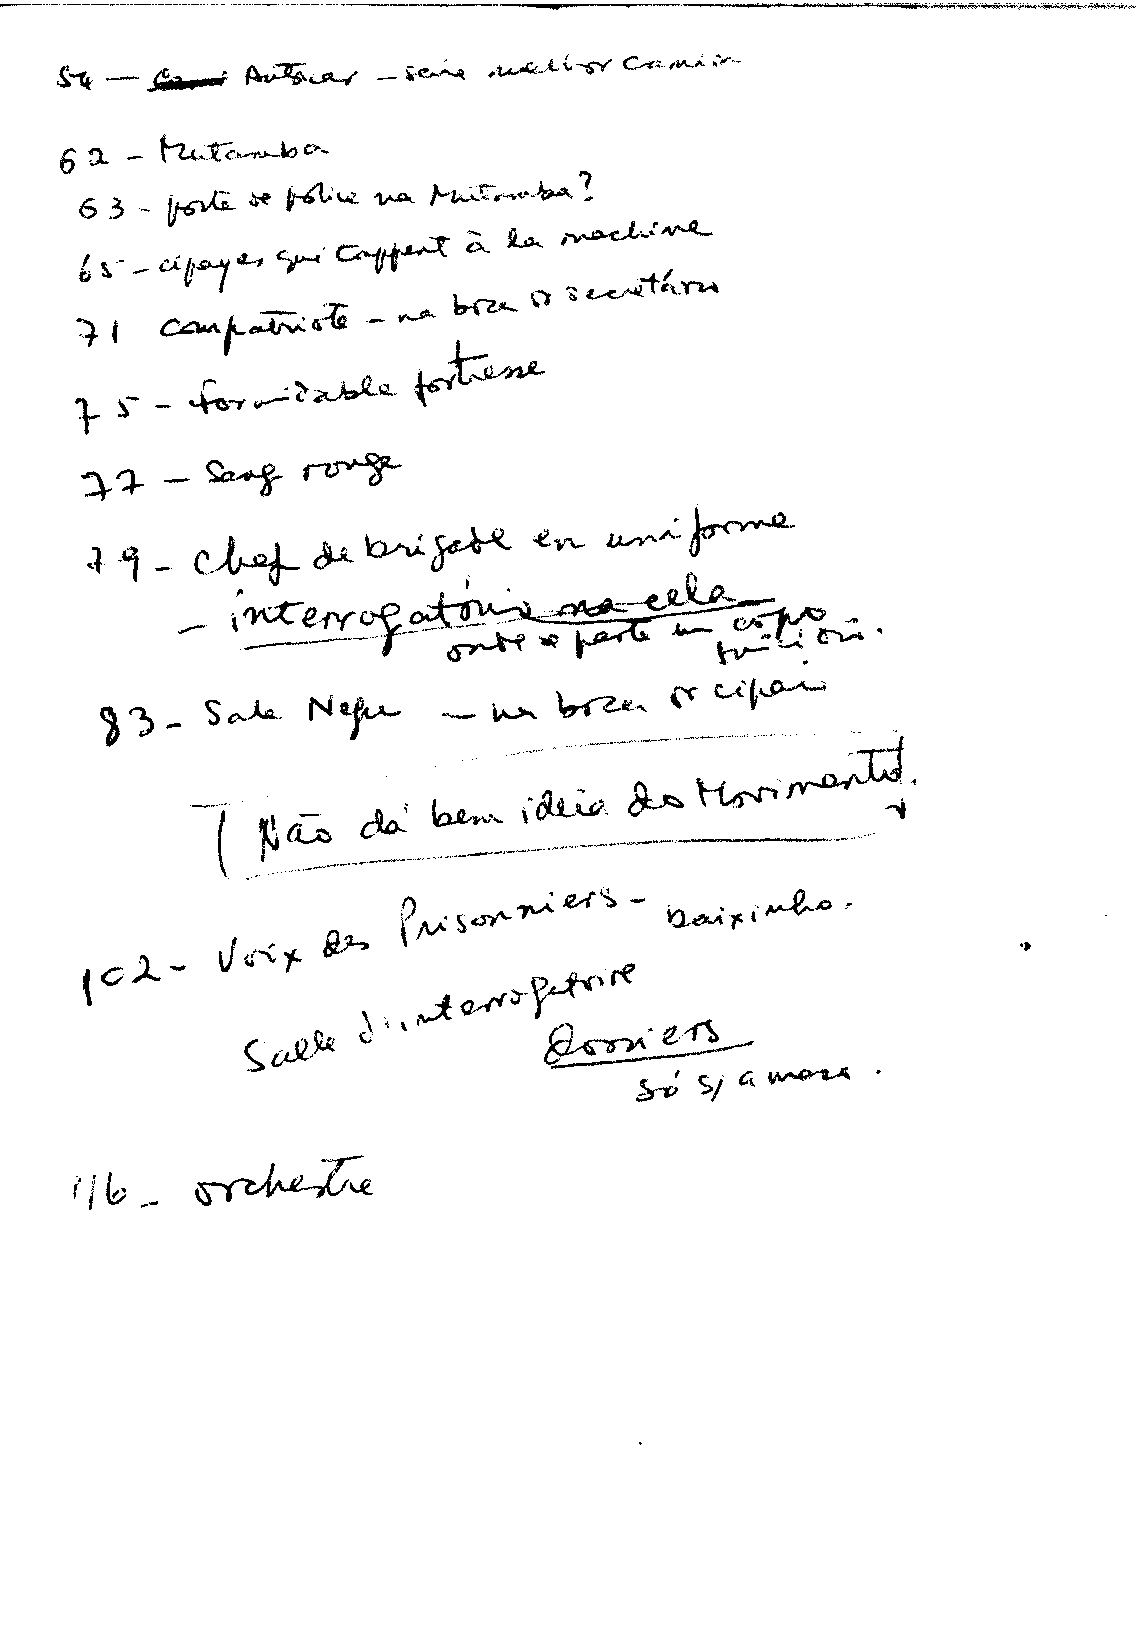 54 — Autocar – seria melhor camion
62 – Mutamba
63 – poste de police na Mutamba?
65 – cipayes qui tappent à la machine
71 compatriote – na boca do secretário
75 – formidable fortresse
77 – Sang rouge
79 – Chef de brigade en uniforme
– interrogatório na cela
onde se parte um copo
83 – Sale Nègre – na boca do cipaio
Não dá bem ideia do Movimento.
102 – Voix des Prisonniers – baixinho.
Salle d'interrogatoire
dossiers
só s/ a mesa.
116 – orchestre